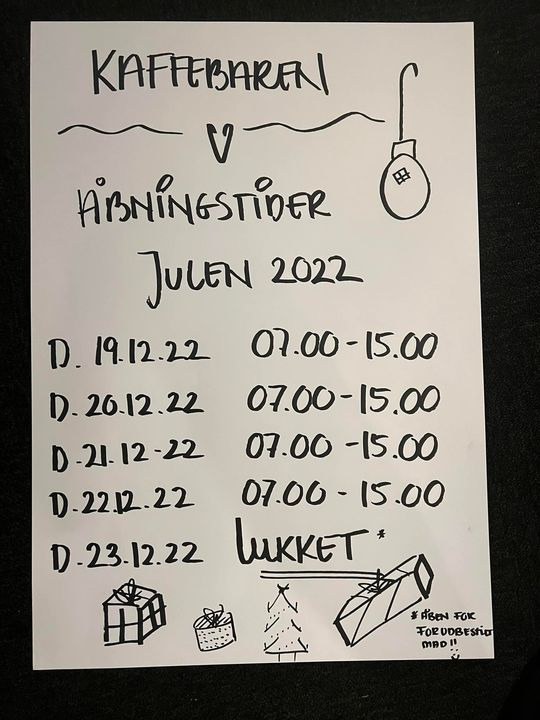 KAFFEBAREN
ÅBNINGSTIDER
JULEN 2022
D. 19.12.22 07.00-15.00
D. 20.12.22 07.00-15.00
D.21.12-22 07.00-15.00
D.22.12.22 07.00-15.00
D.23.12.22 LUKKET*
* ÅBEN FOR
FORUDBESTILT
MAD!!